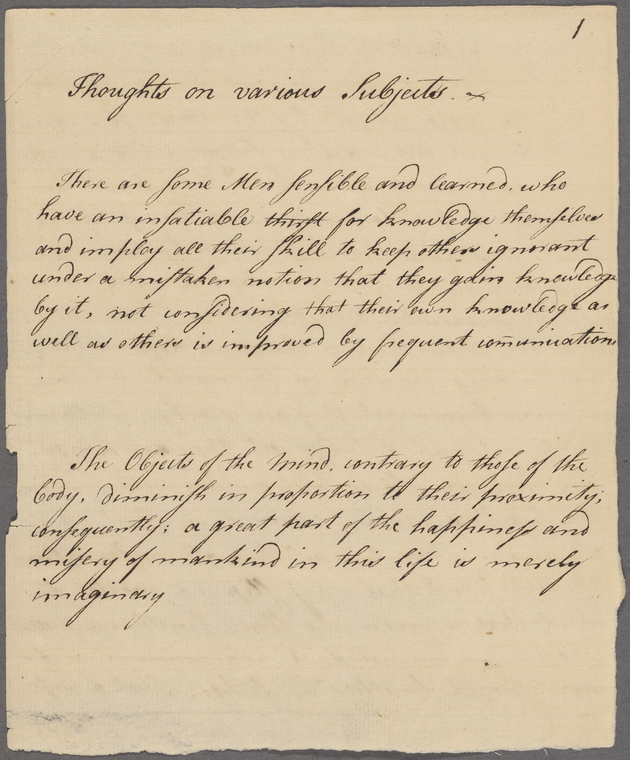 1
Thoughts on various Subjects.
There are some Men sensible and learned, who
have an insatiable thirst for knowledge themselves
and imploy all their skill to keep others ignorant
under a mistaken notion that they gain knowledge
by it, not considering that their own knowledge as
well as others is improved by frequent com̄unication
The Objects of the mind, contrary to those of the
body, diminish in proportion to their proximity;
consequently; a great part of the happiness and
misery of mankind in this life is merely
imaginary